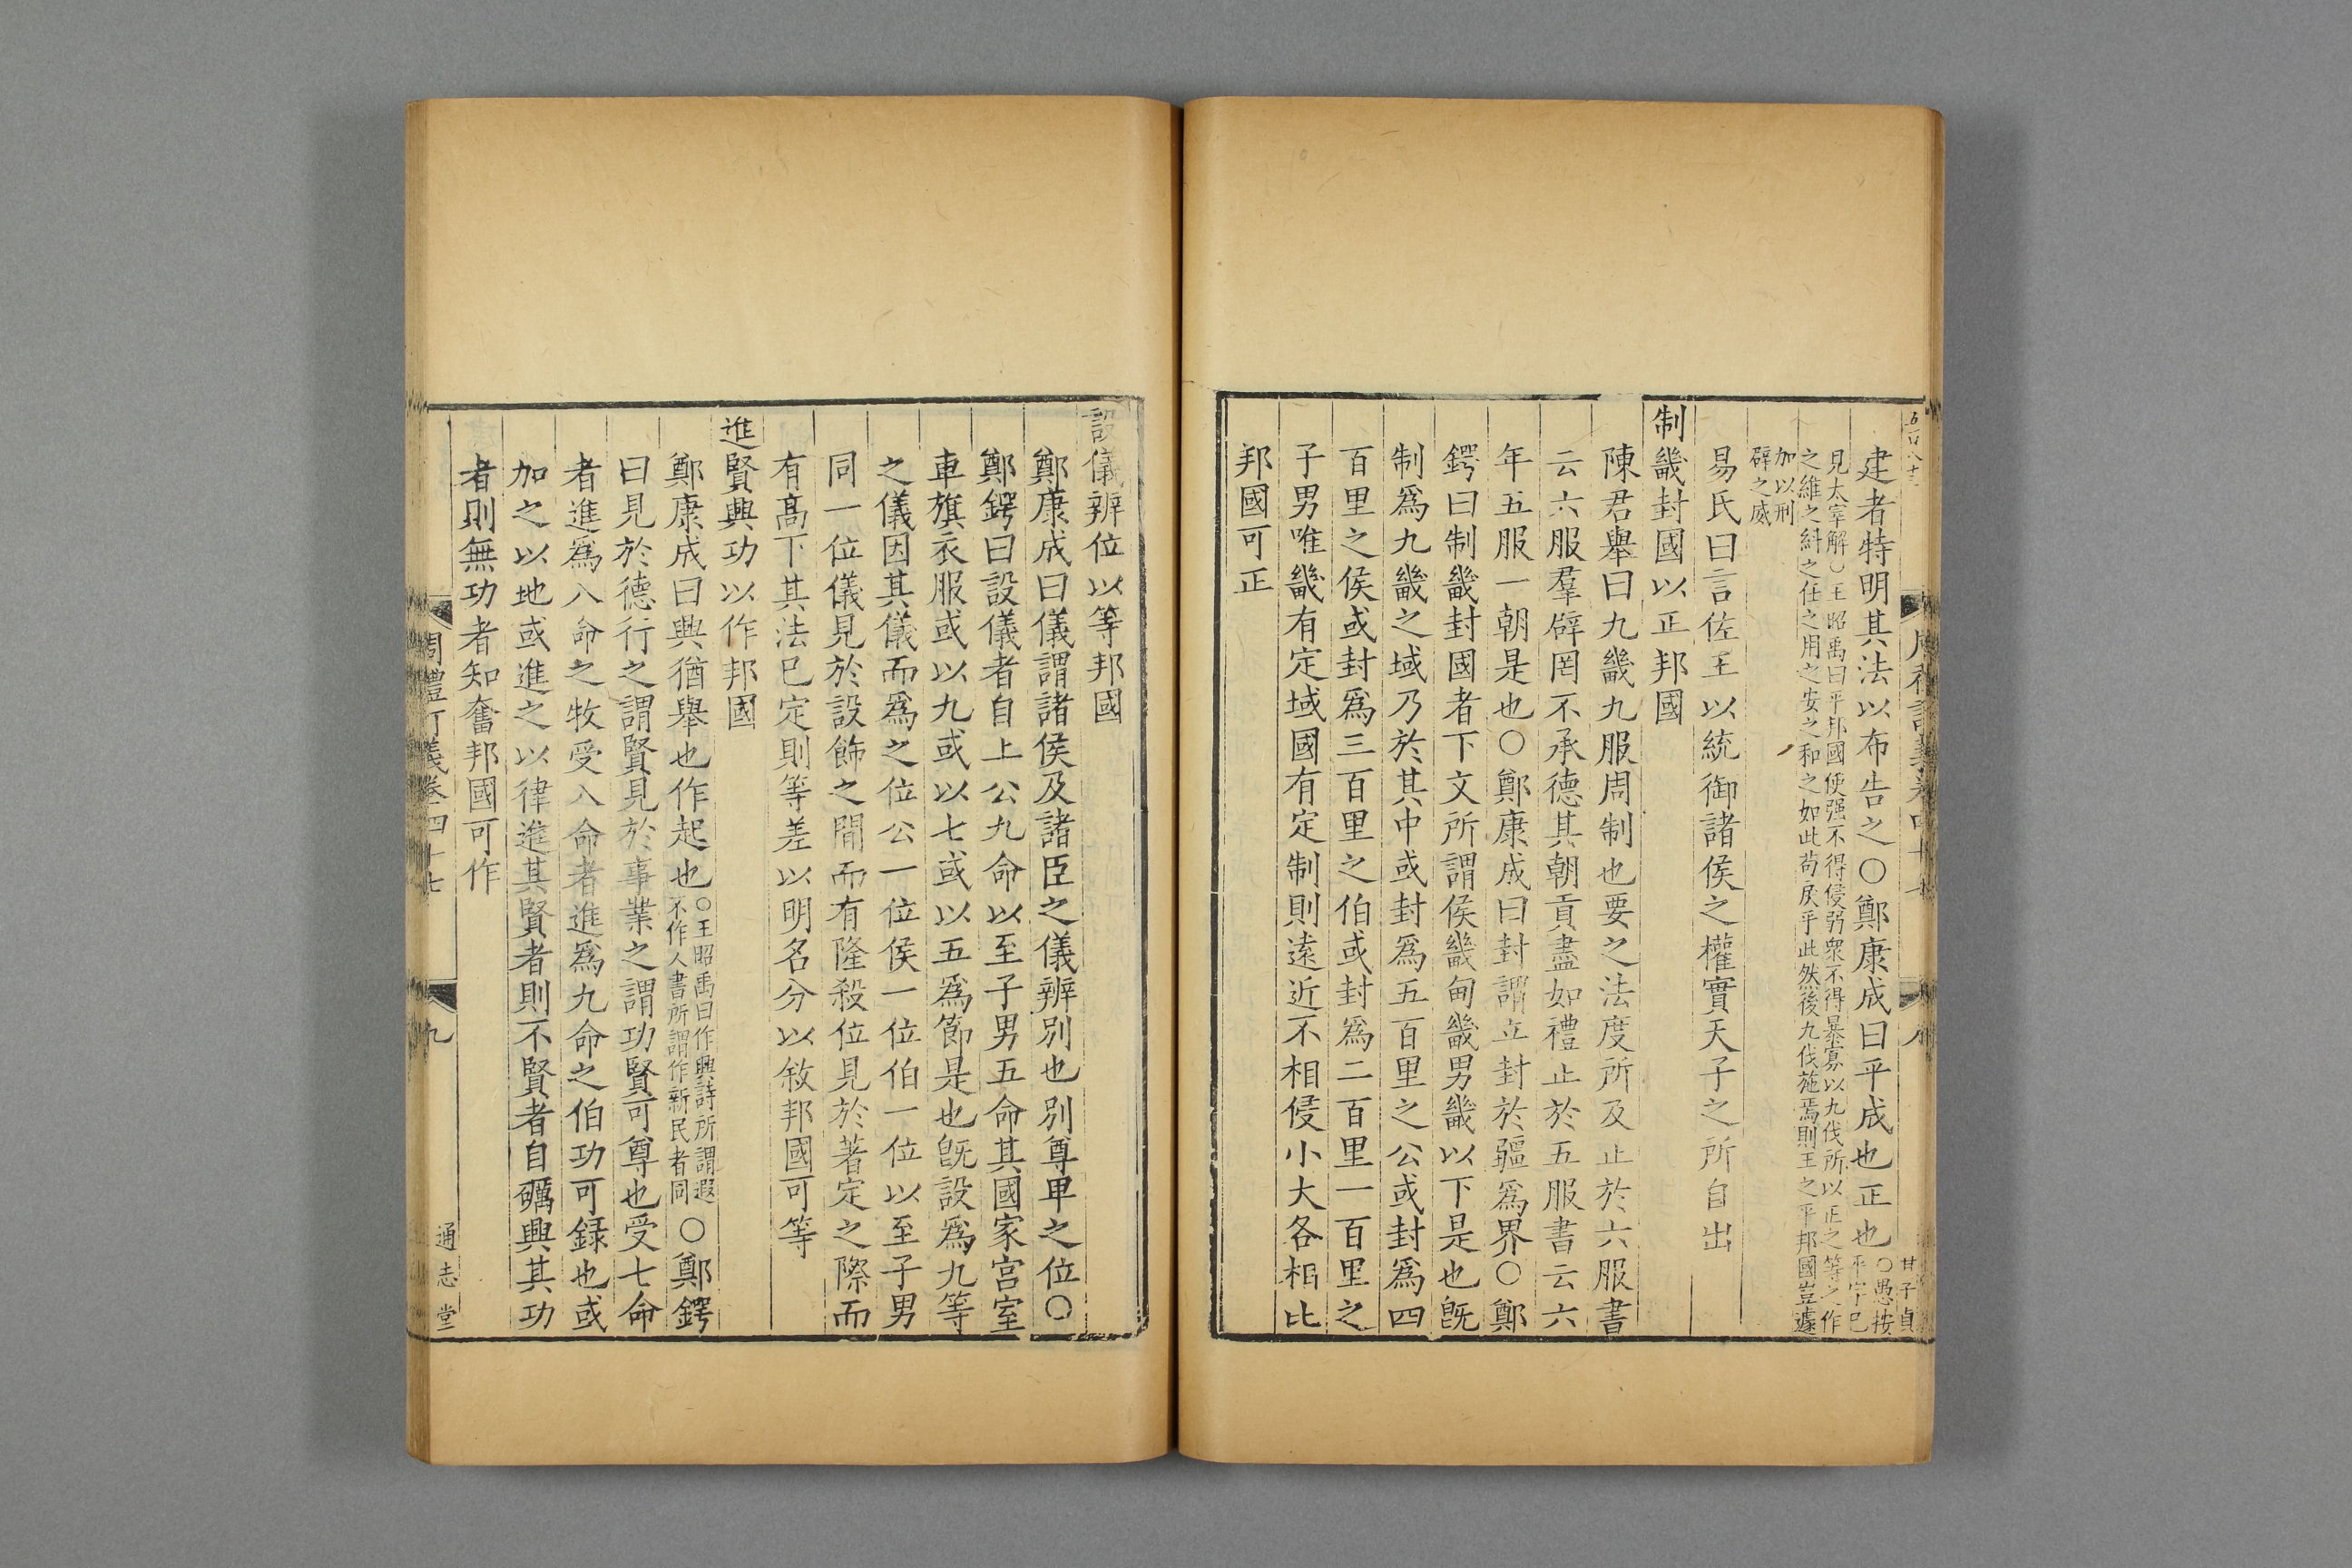 建者特明其法以布告之○鄭康成曰平成也正也○愚按平字已
見太宰解○王昭禹曰平邦國使强不得侵弱衆不得暴寡以九伐所以正之等之作
之維之糾之任之用之安之和之如此苟戾乎此然後九伐施焉則王之平邦國豈遽
加以刑
辟之威
易氏曰言佐王以統御諸侯之權實天子之所自出
制畿封國以正邦國
陳君舉曰九畿九服周制也要之法度所及止於六服書
云六服羣辟罔不承德其朝貢盡如禮止於五服書云六
年五服一朝是也○鄭康成曰封謂立封於疆爲界○鄭
鍔曰制畿封國者下文所謂侯畿甸畿男畿以下是也旣
制爲九畿之域乃於其中或封爲五百里之公或封爲四
百里之侯或封爲三百里之伯或封爲二百里一百里之
子男唯畿有定域國有定制則遠近不相侵小大各相比
邦國可正
甘子貞
設儀辨位以等邦國
鄭康成曰儀謂諸侯及諸臣之儀辨别也别尊卑之位○
鄭鍔曰設儀者自上公九命以至子男五命其國家宮室
車旗衣服或以九或以七或以五爲節是也旣設爲九等
之儀因其儀而爲之位公一位侯一位伯一位以至子男
同一位儀見於設飾之間而有隆殺位見於著定之際而
有高下其法已定則等差以明名分以敘邦國可等
進賢興功以作邦國
鄭康成曰興猶舉也作起也○王昭禹曰作興詩所謂遐不作人書所謂作新民者同○鄭鍔
曰見於德行之謂賢見於事業之謂功賢可尊也受七命
者進爲八命之牧受八命者進爲九命之伯功可録也或
加之以地或進之以律進其賢者則不賢者自礪興其功
者則無功者知奮邦國可作
周禮訂義卷四十七
九
通志堂